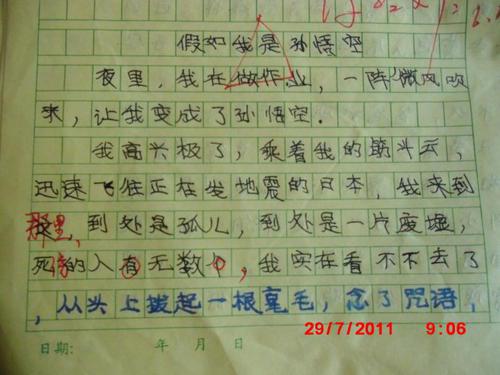 假如我是孙悟空
夜里，我在做作业，一阵微风吹
来，让我变成了孙悟空．
我高兴极了，乘着我的筋斗云，
迅速飞往正在发地震的日本，我来到
那里，到处是孤儿，到处是一片废墟，
死的人有无数个，我实在看不下去了
，从头上拔起一根毫毛，念了咒语，
29/7/2011 9:06
日期： 年 月 日